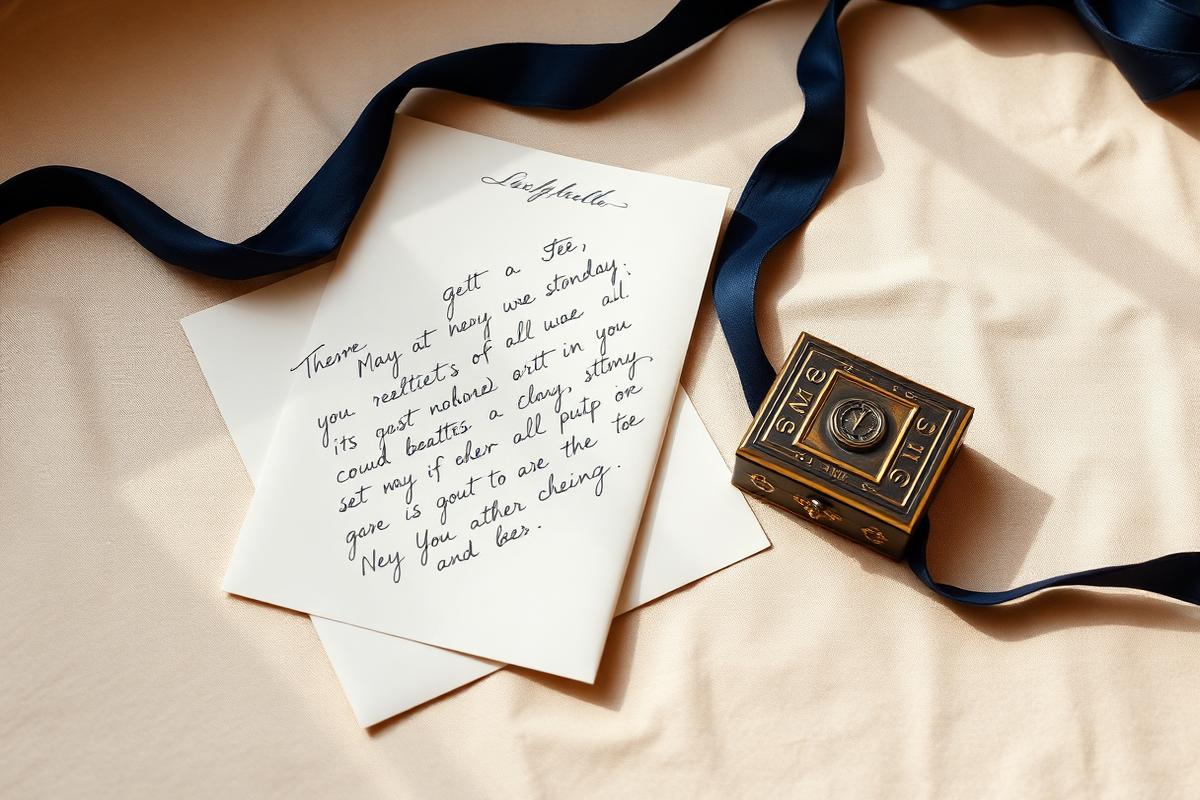 gett a Tee,
Theme May at neoy wre stonday.
you reeltiets of all wae all.
its gast nohone artt in you
could beattes a clang, sttmy
set nay if cher all putp or
gare is gout to are the toe
Ney You ather cheing.
and bes.
SME